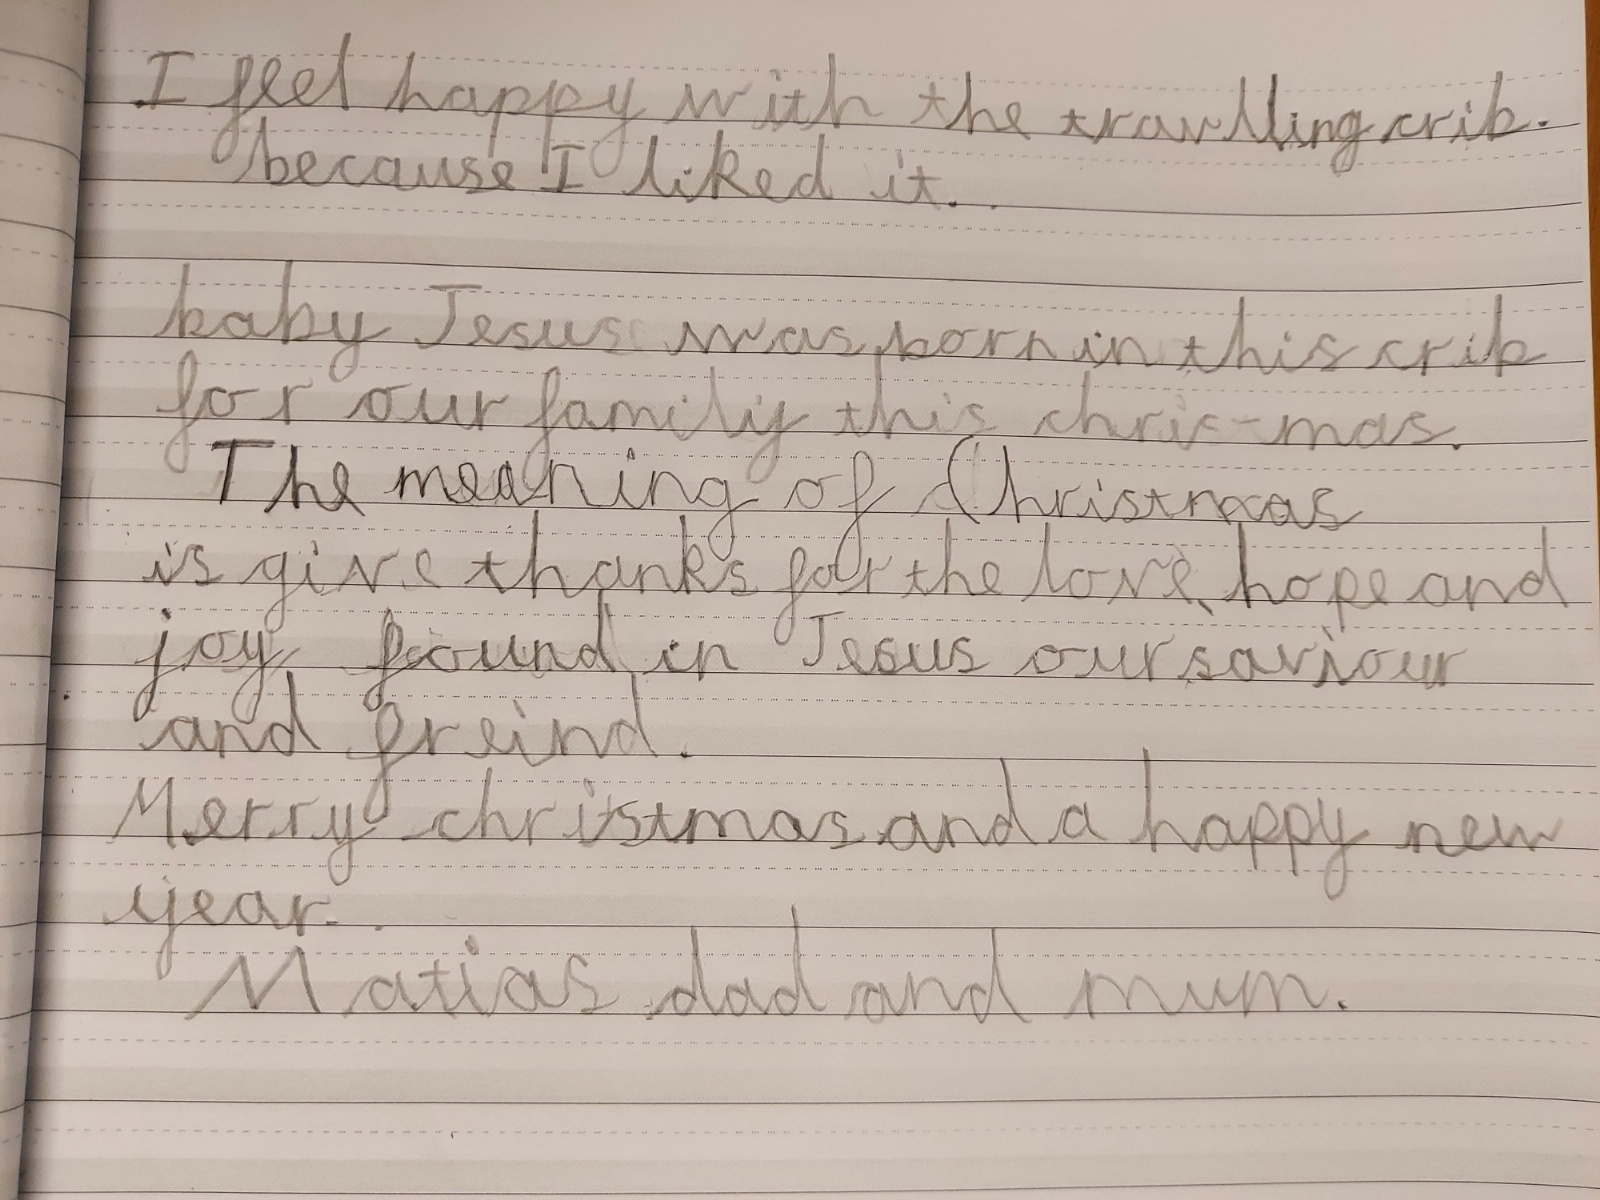 I feel happy with the travlling crib.
because I liked it.
baby Jesus was born in this crib
for our family this chris-mas.
The meaning of Christmas
is give thanks for the love, hope and
joy, found in Jesus our saviour
and freind.
Merry christmas and a happy new
year.
Matias dad and mum.